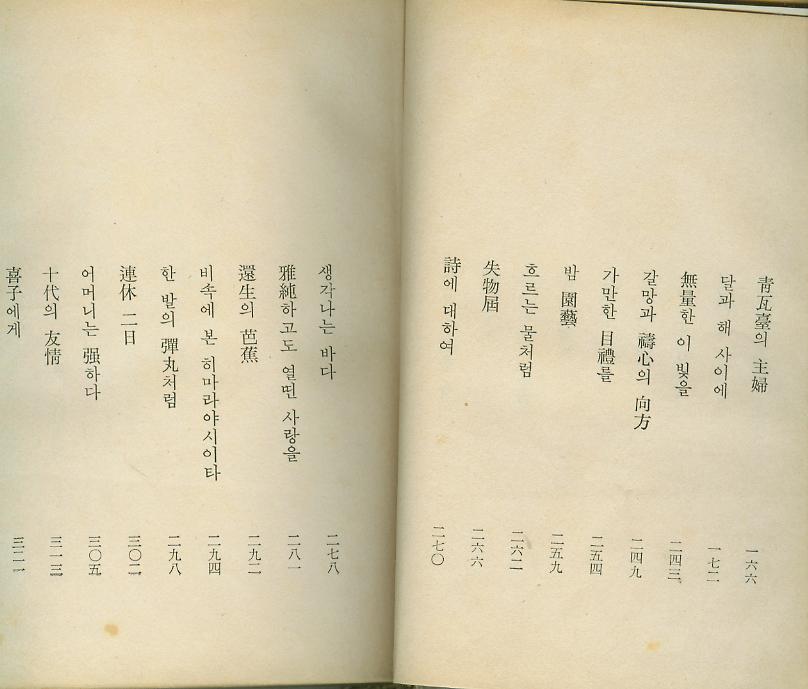 靑瓦臺의 主婦 一六六
달과 해 사이에 一七二
無量한 이 빛을 二四三
갈망과 禱心의 向方 二四九
가만한 目禮를 二五四
밤 園藝 二五九
흐르는 물처럼 二六二
失物屆 二六六
詩에 대하여 二七〇
생각나는 바다 二七八
雅純하고도 열띤 사랑을 二八一
還生의 芭蕉 二九二
비속에 본 히마라야시이타 二九四
한 발의 彈丸처럼 二九八
連休 二日 三〇二
어머니는 强하다 三〇五
十代의 友情 三一三
喜子에게 三二一